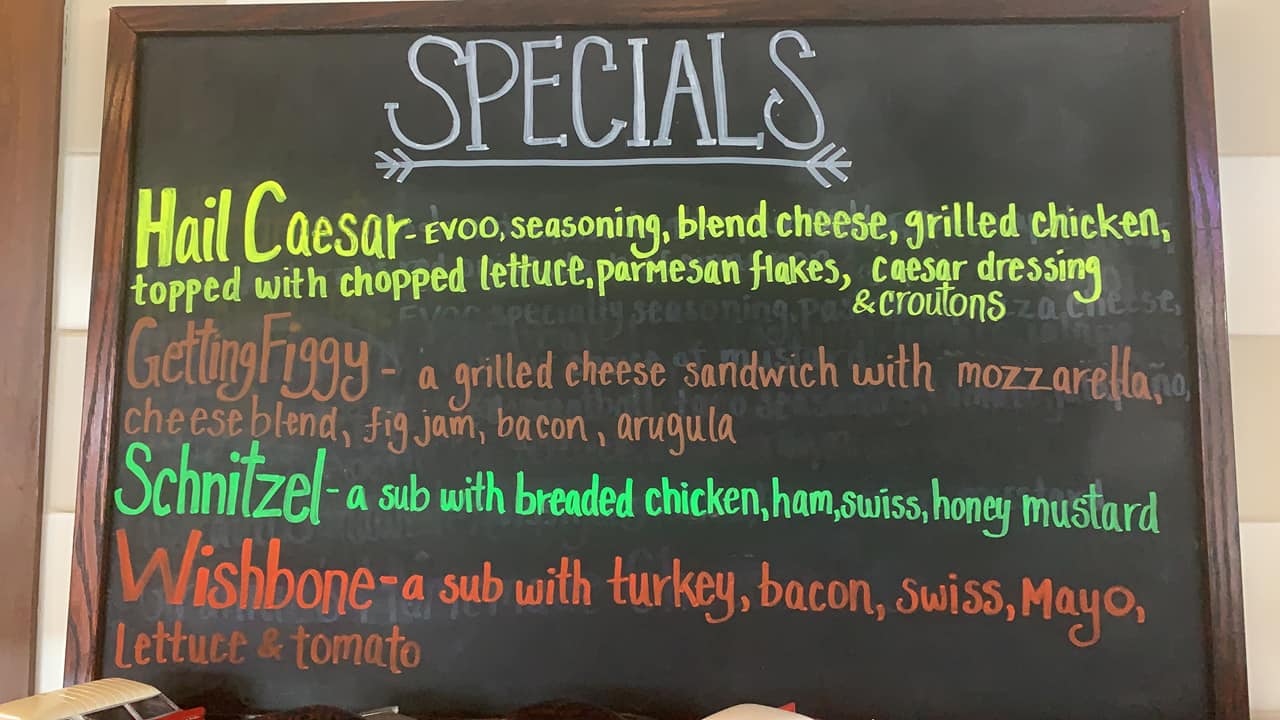 SPECIALS
Hail Caesar- EVOO, seasoning, blend cheese, grilled chicken,
topped with chopped lettuce, parmesan flakes, caesar dressing
& croutons
Getting Figgy - a grilled cheese sandwich with mozzarella,
cheese blend, fig jam, bacon, arugula
Schnitzel - a sub with breaded chicken, ham, swiss, honey mustard
Wishbone - a sub with turkey, bacon, swiss, Mayo,
Lettuce & tomato